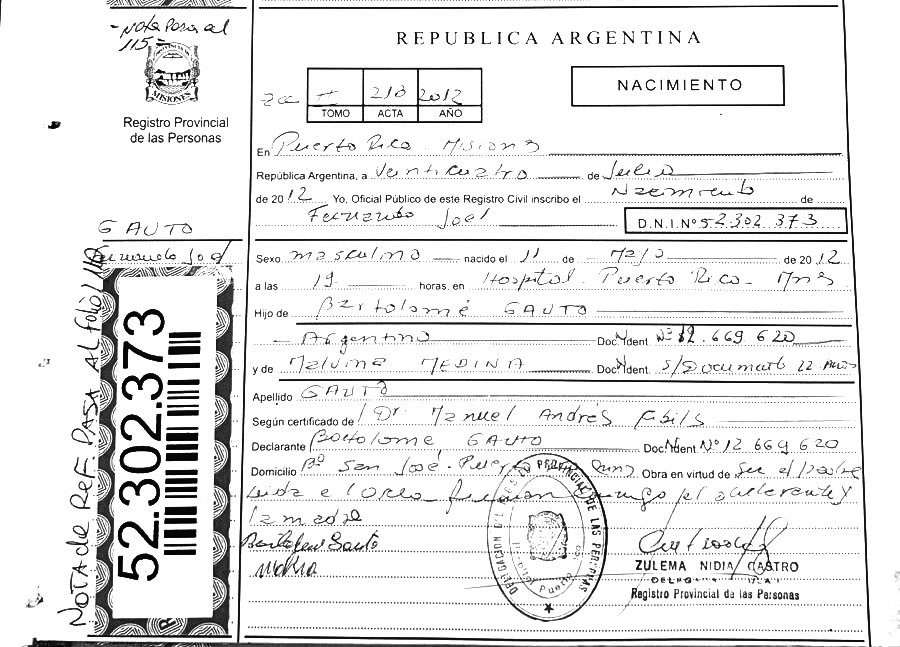 - Nota Pasa al
115 -
PROVINCIA DE
MISIONES
Registro Provincial
de las Personas
REPUBLICA ARGENTINA
NACIMIENTO
II 210 2012
TOMO ACTA AÑO
En Puerto Rico - Misiones
República Argentina, a Veinticuatro de Julio
de 2012 Yo, Oficial Público de este Registro Civil inscribo el Nacimiento de
Fernando Joel D.N.I Nº 52.302.373
GAUTO
Fernando Joel
Sexo masculino nacido el 11 de Mayo de 2012
a las 19 horas. en Hospital. Puerto Rico - Mnes
Hijo de Bartolomé GAUTO
Argentino Doc. Ident Nº 12.669.620
y de Malvina MEDINA Doc. Ident. s/Documento 22 Años
Apellido GAUTO
Según certificado de Dr. Manuel Andrés
Declarante Bartolomé GAUTO Doc. Ident Nº 12 669 620
Domicilio Bº San José - Puerto Obra en virtud de Ser el Padre
Leida el Acta firman conmigo el declarente y
la madre
Bartolome Gauto
ZULEMA NIDIA CASTRO
Registro Provincial de las Personas
PROVINCIAL DE LAS PERSONAS
NOTA de Ref. PASA AL folio 118
52.302.373